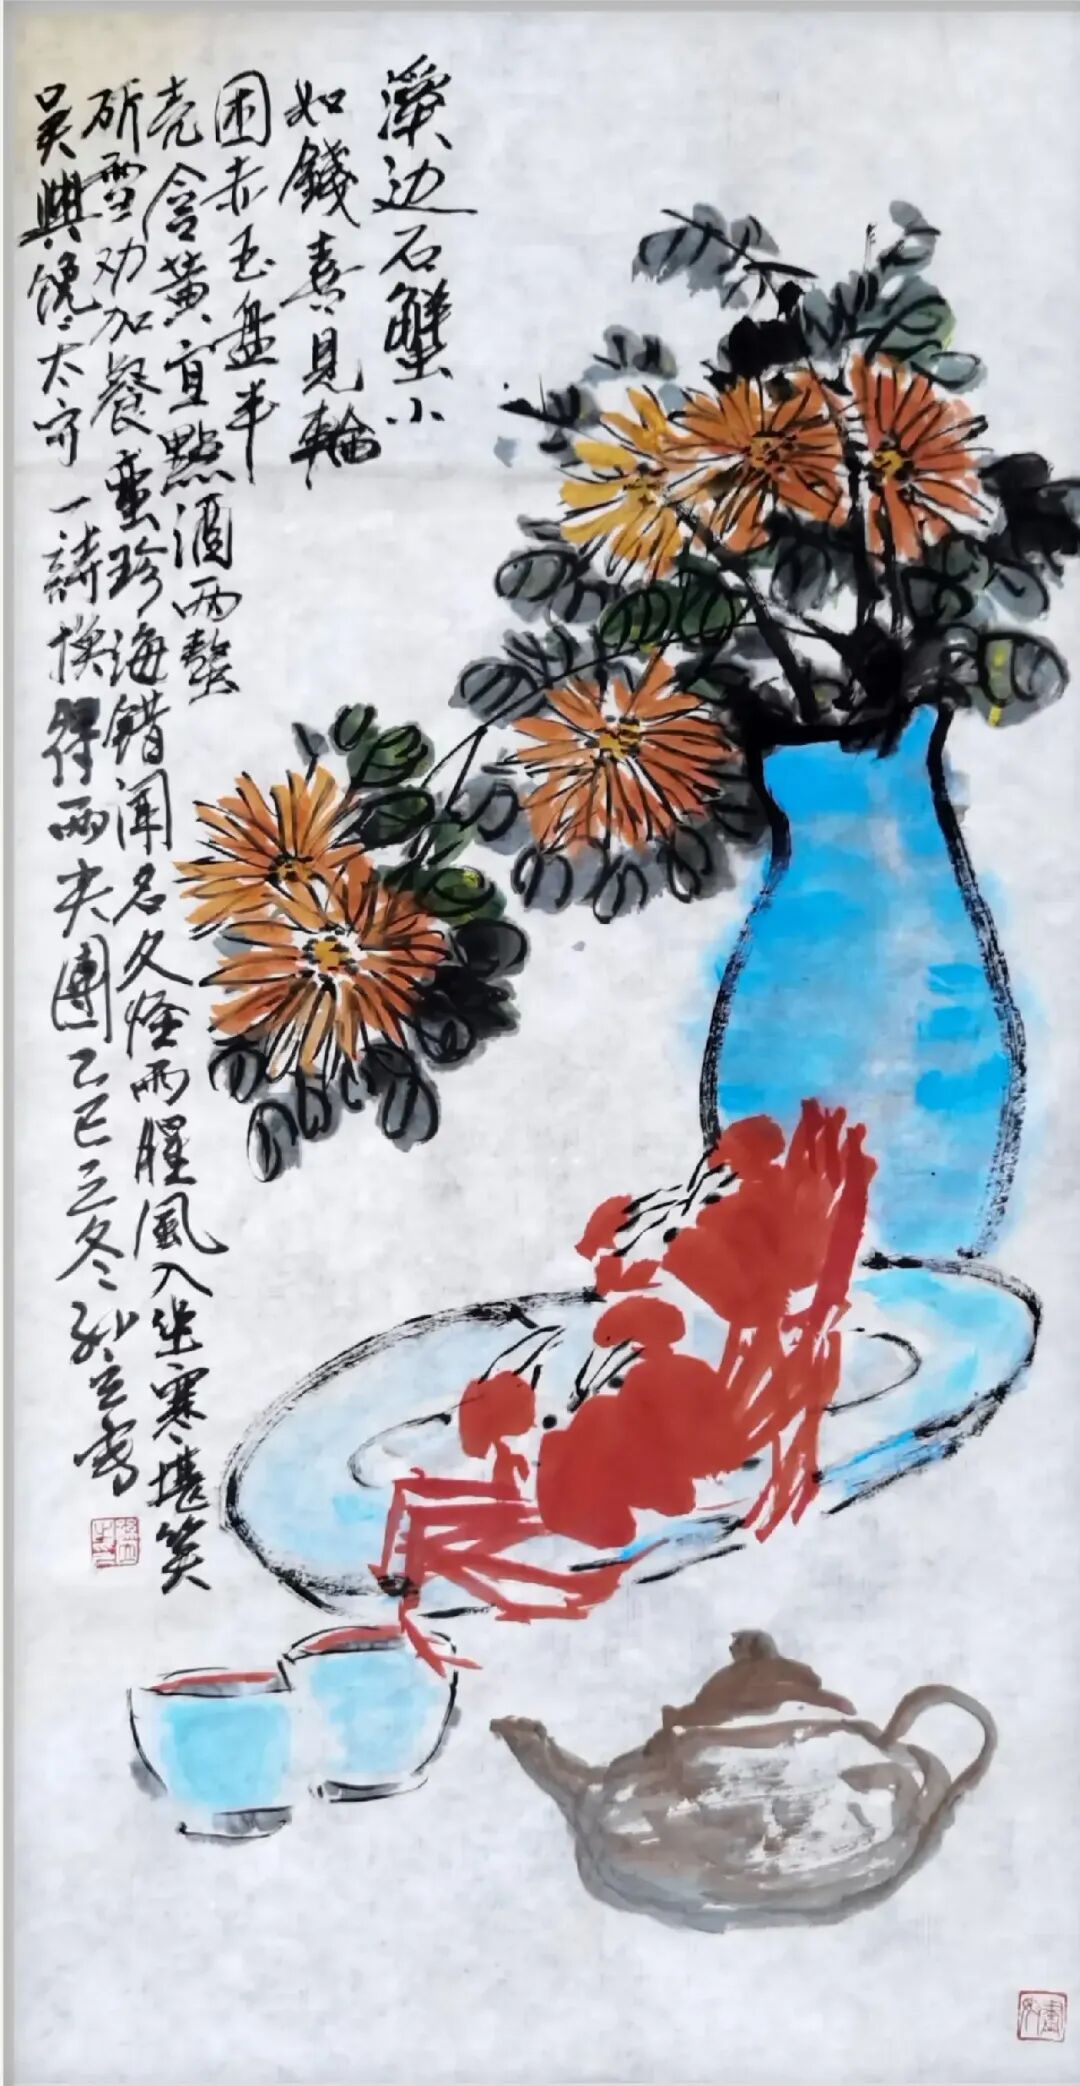 溪边石蟹小
如錢喜見輪
囷赤玉盘半
壳含黄宜點酒两螯
斫雪劝加餐蛮珍海錯闻名久怪雨腥風入坐寒堪笑
吴興馋太守一詩换得两尖團乙巳立冬